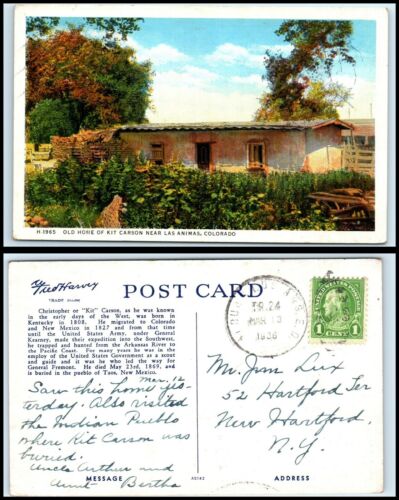 H-1965 OLD HOME OF KIT CARSON NEAR LAS ANIMAS, COLORADO
Fred Harvey
TRADE MARK
POST CARD
Christopher or "Kit" Carson, as he was known
in the early days of the West, was born in
Kentucky in 1808. He migrated to Colorado
and New Mexico in 1827 and from that time
until the United States Army, under General
Kearney, made their expedition into the Southwest,
he trapped and hunted from the Arkansas River to
the Pacific Coast. For many years he was in the
employ of the United States Government as a scout
and guide and it was he who led the way for
General Fremont. He died May 23rd, 1869, and
is buried in the pueblo of Taos, New Mexico.
Mar. 12
Saw this home yes-
terday. Also visited
the Indian Pueblo
where Kit Carson was
buried.
Uncle Arthur and
Aunt Bertha
MESSAGE
A5142
TR. 24
MAR 13
1936
1 CENT 1
Mr. Jim Lux
52 Hartford Ter
New Hartford,
N.Y.
ADDRESS